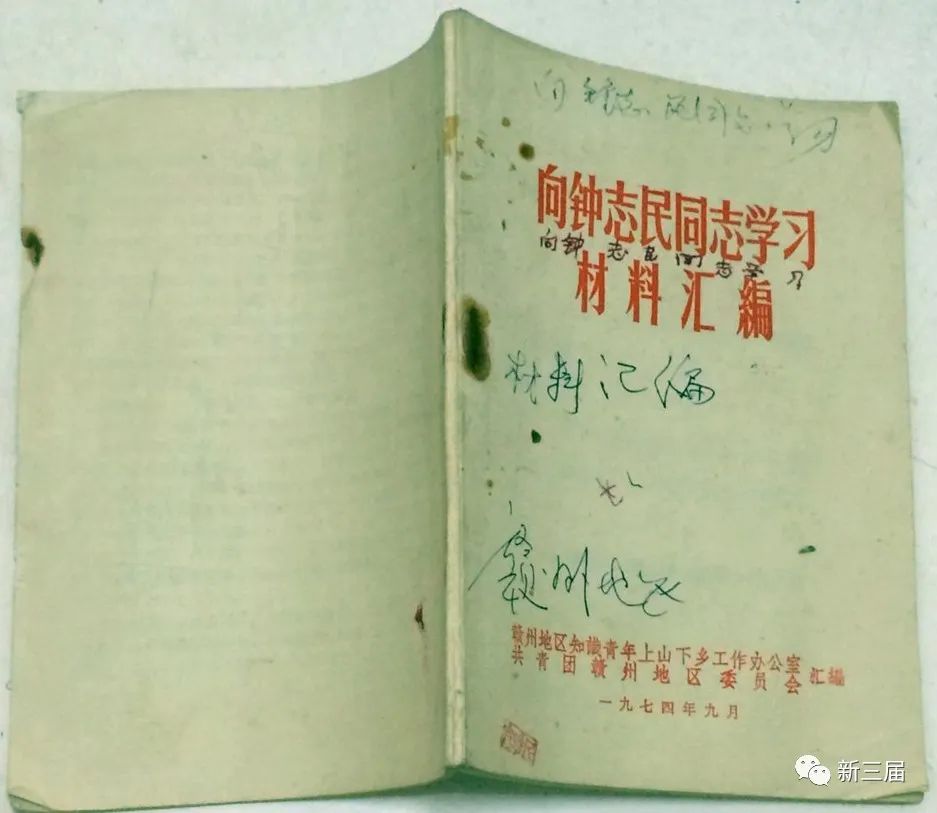 向钟志民同志学习
向钟志民同志学习
向钟志民同志学习
材料汇編
材料汇编
赣州地区
赣州地区知識青年上山下乡工作办公室
共青团赣州地区委员会
汇編
一九七四年九月
新三届